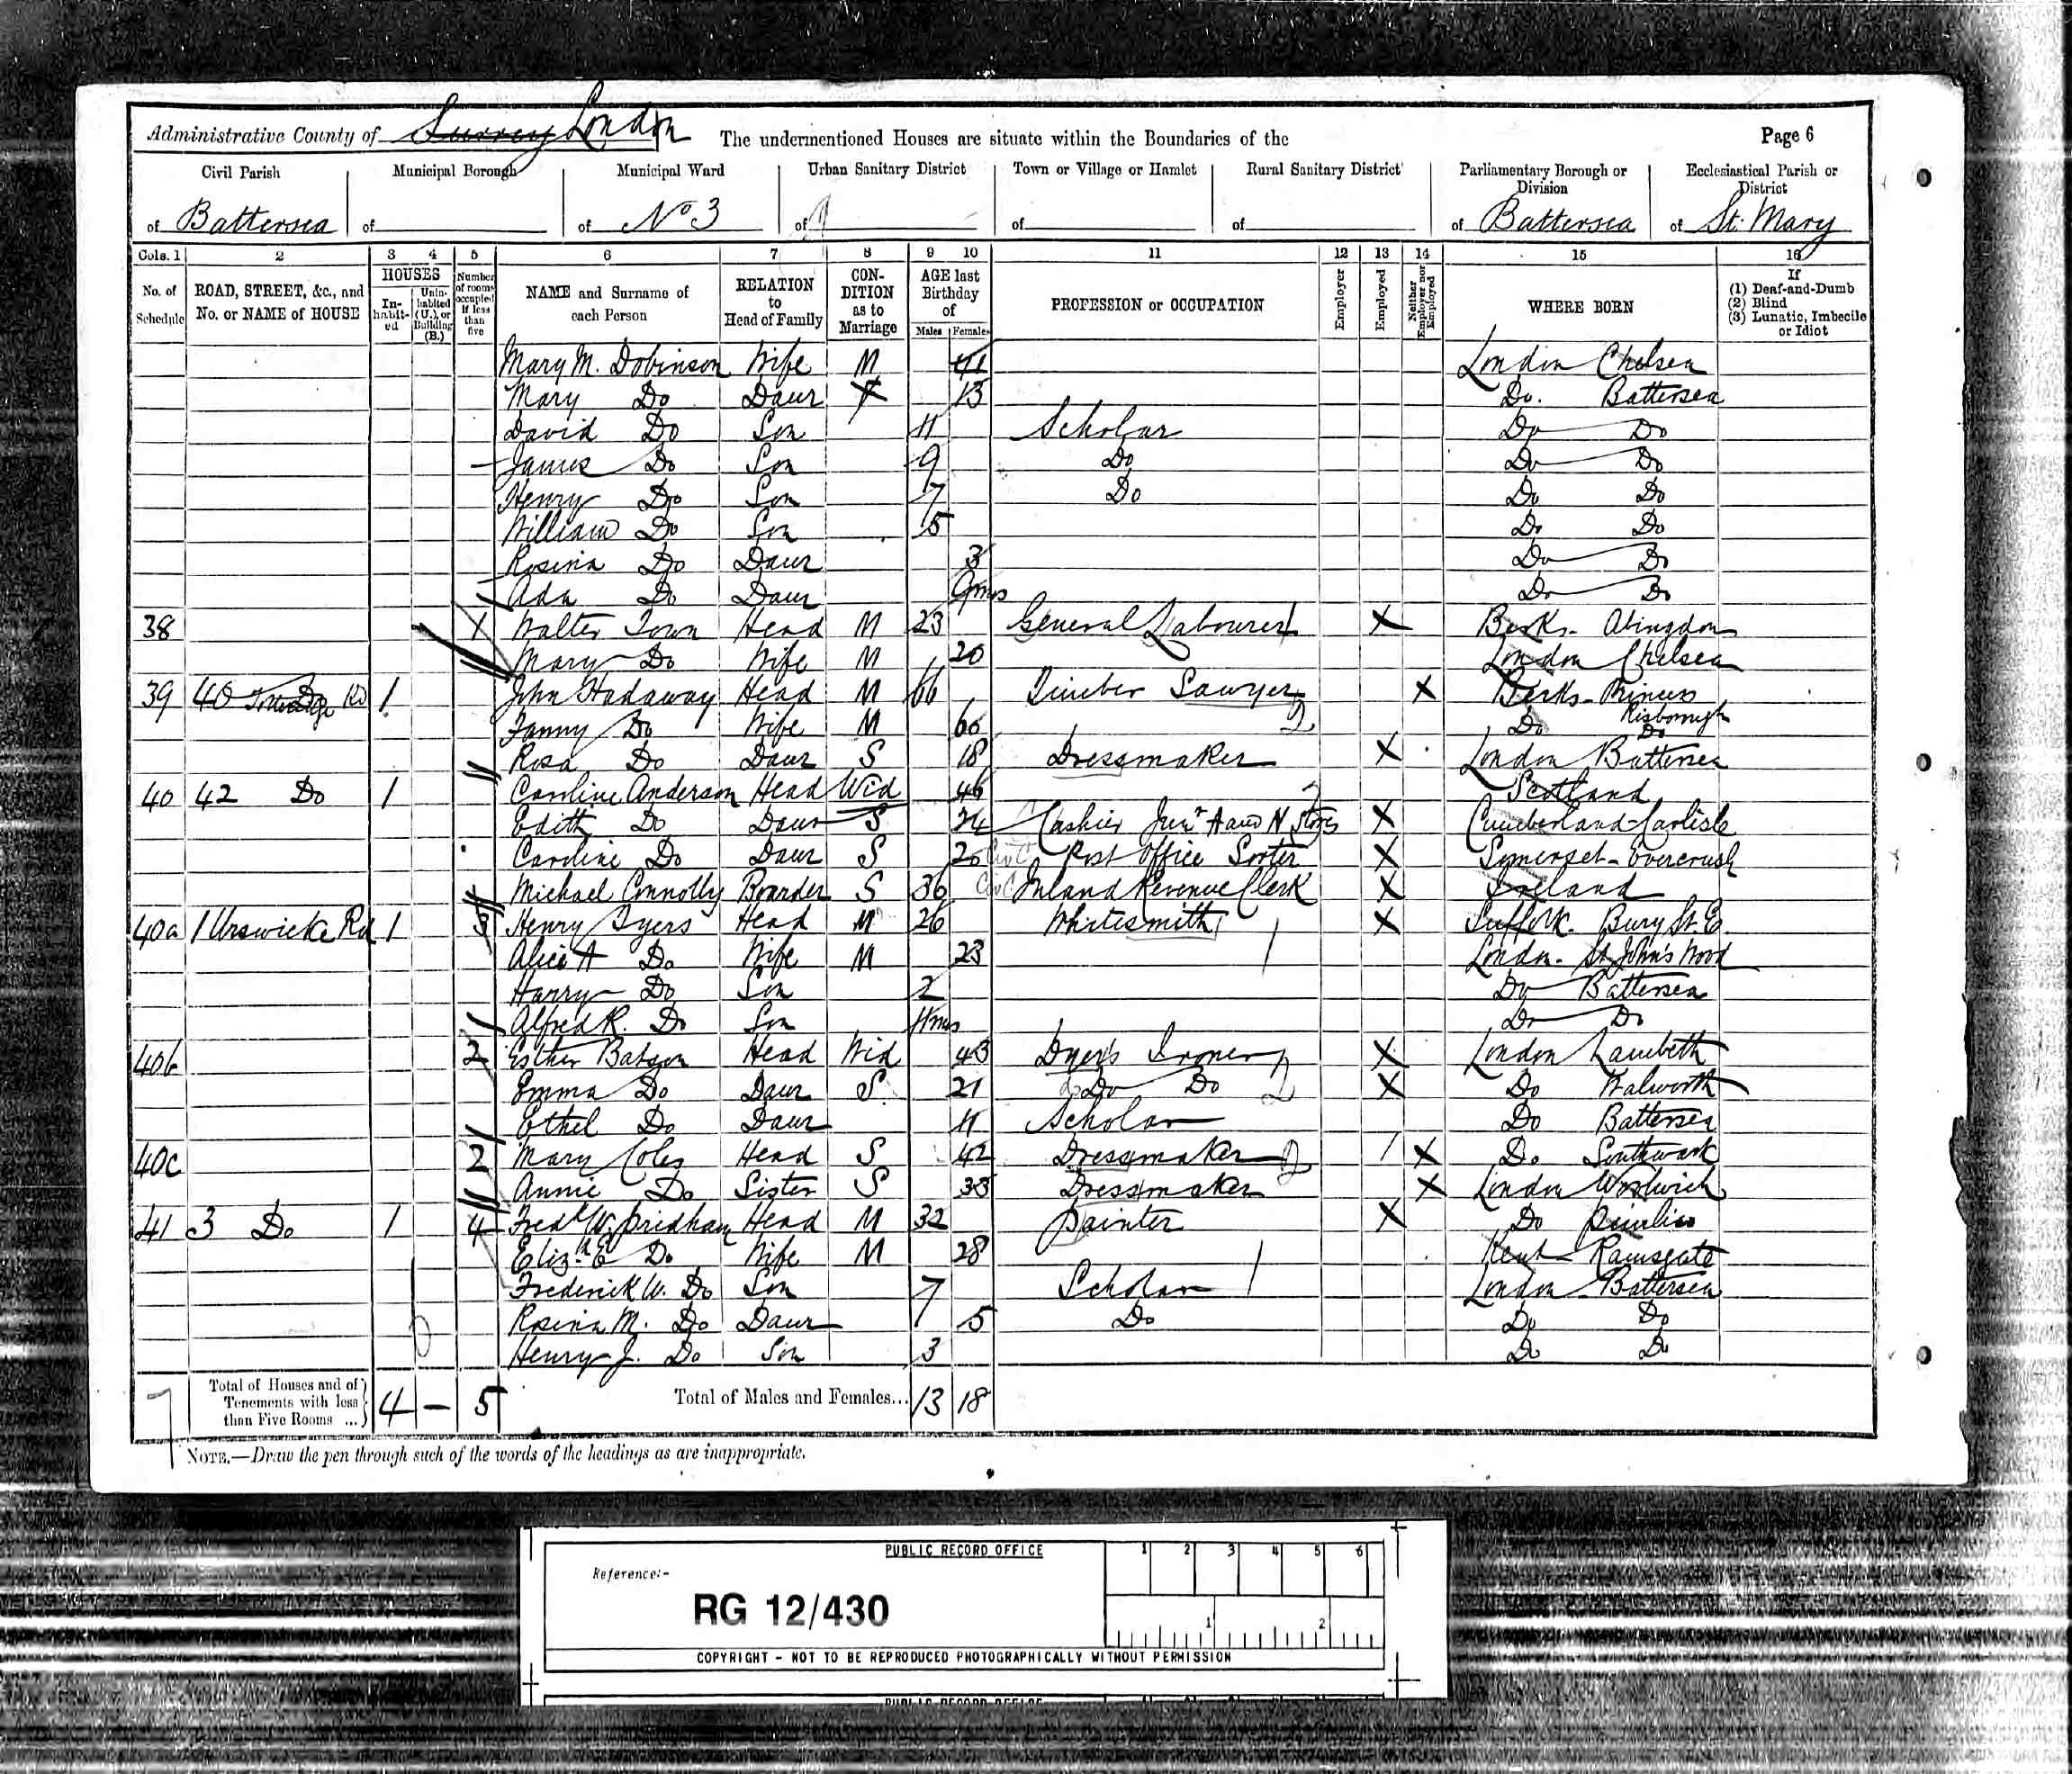 Administrative County of Surrey London The undermentioned Houses are situate within the Boundaries of the Page 6
Civil Parish Municipal Borough Municipal Ward Urban Sanitary District Town or Village or Hamlet Rural Sanitary District Parliamentary Borough or Division Ecclesiastical Parish or District
of Battersea of of No 3 of of of of Battersea of St. Mary
Cols. 1 2 3 4 5 6 7 8 9 10 11 12 13 14 15 16
No. of Schedule ROAD, STREET, &c., and No. or NAME of HOUSE HOUSES In-habit-ed Unin-habited (U.), or Building (B.) Number of rooms occupied if less than five NAME and Surname of each Person RELATION to Head of Family CON-DITION as to Marriage AGE last Birthday of Males Females PROFESSION or OCCUPATION Employer Employed Neither Employer nor Employed WHERE BORN If (1) Deaf-and-Dumb (2) Blind (3) Lunatic, Imbecile or Idiot
Mary M. Dobinson Wife M 41 London Chelsea
Mary Do Daur 13 Do. Battersea
David Do Son 11 Scholar Do Do
James Do Son 9 Do Do Do
Henry Do Son 7 Do Do Do
William Do Son 5 Do Do
Rosina Do Daur 3 Do Do
Ada Do Daur 9mos Do Do
38 1 Walter Town Head M 23 General Labourer X Berks. Abingdon
Mary Do Wife M 20 London Chelsea
39 40 Rd 1 John Hadaway Head M 66 Timber Sawyer X Berks - Princes Risborough
Fanny Do Wife M 66 Do Do
Rosa Do Daur S 18 Dressmaker X London Battersea
40 42 Do 1 Caroline Anderson Head Wid 46 Scotland
Edith Do Daur S 24 Cashier Junr A and N Stores X Cumberland Carlisle
Caroline Do Daur S 20 Post Office Sorter X Somerset -
Michael Connolly Boarder S 36 Inland Revenue Clerk X Ireland
40a 1 Urswicke Rd 1 3 Henry Tyers Head M 26 Whitesmith X Suffolk. Bury St. E.
Alice A Do Wife M 23 London - St John's Wood
Harry Do Son 2 Do Battersea
Alfred R. Do Son 11mos Do Do
40b 2 Esther Batson Head Wid 43 Dyer's Ironer X London Lambeth
Emma Do Daur S 21 Do Do X Do Walworth
Ethel Do Daur 11 Scholar Do Battersea
40c 2 Mary Coles Head S 42 Dressmaker X Do. Southwark
Annie Do Sister S 33 Dressmaker X London Woolwich
41 3 Do 1 4 Fredk W. Pridham Head M 32 Painter X Do Pimlico
Elizth E Do Wife M 28 Kent Ramsgate
Frederick W. Do Son 7 Scholar London Battersea
Rosina M. Do Daur 5 Do Do Do
Henry J. Do Son 3 Do Do
Total of Houses and of Tenements with less than Five Rooms ... 4 — 5 Total of Males and Females... 13 18
NOTE.—Draw the pen through such of the words of the headings as are inappropriate.
PUBLIC RECORD OFFICE
1 2 3 4 5 6
Reference:-
RG 12/430
1 2
COPYRIGHT - NOT TO BE REPRODUCED PHOTOGRAPHICALLY WITHOUT PERMISSION
PUBLIC RECORD OFFICE